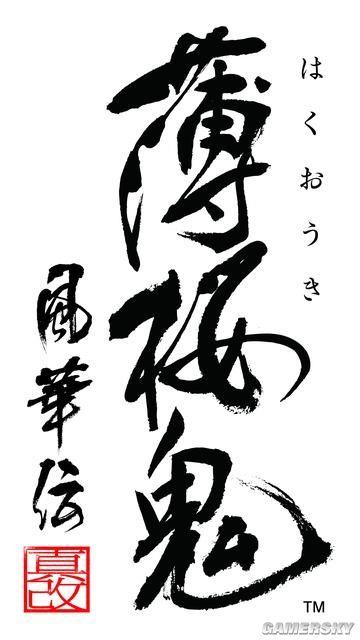 はくおうき
薄桜鬼
風華伝
真改
TM
GAMERSKY